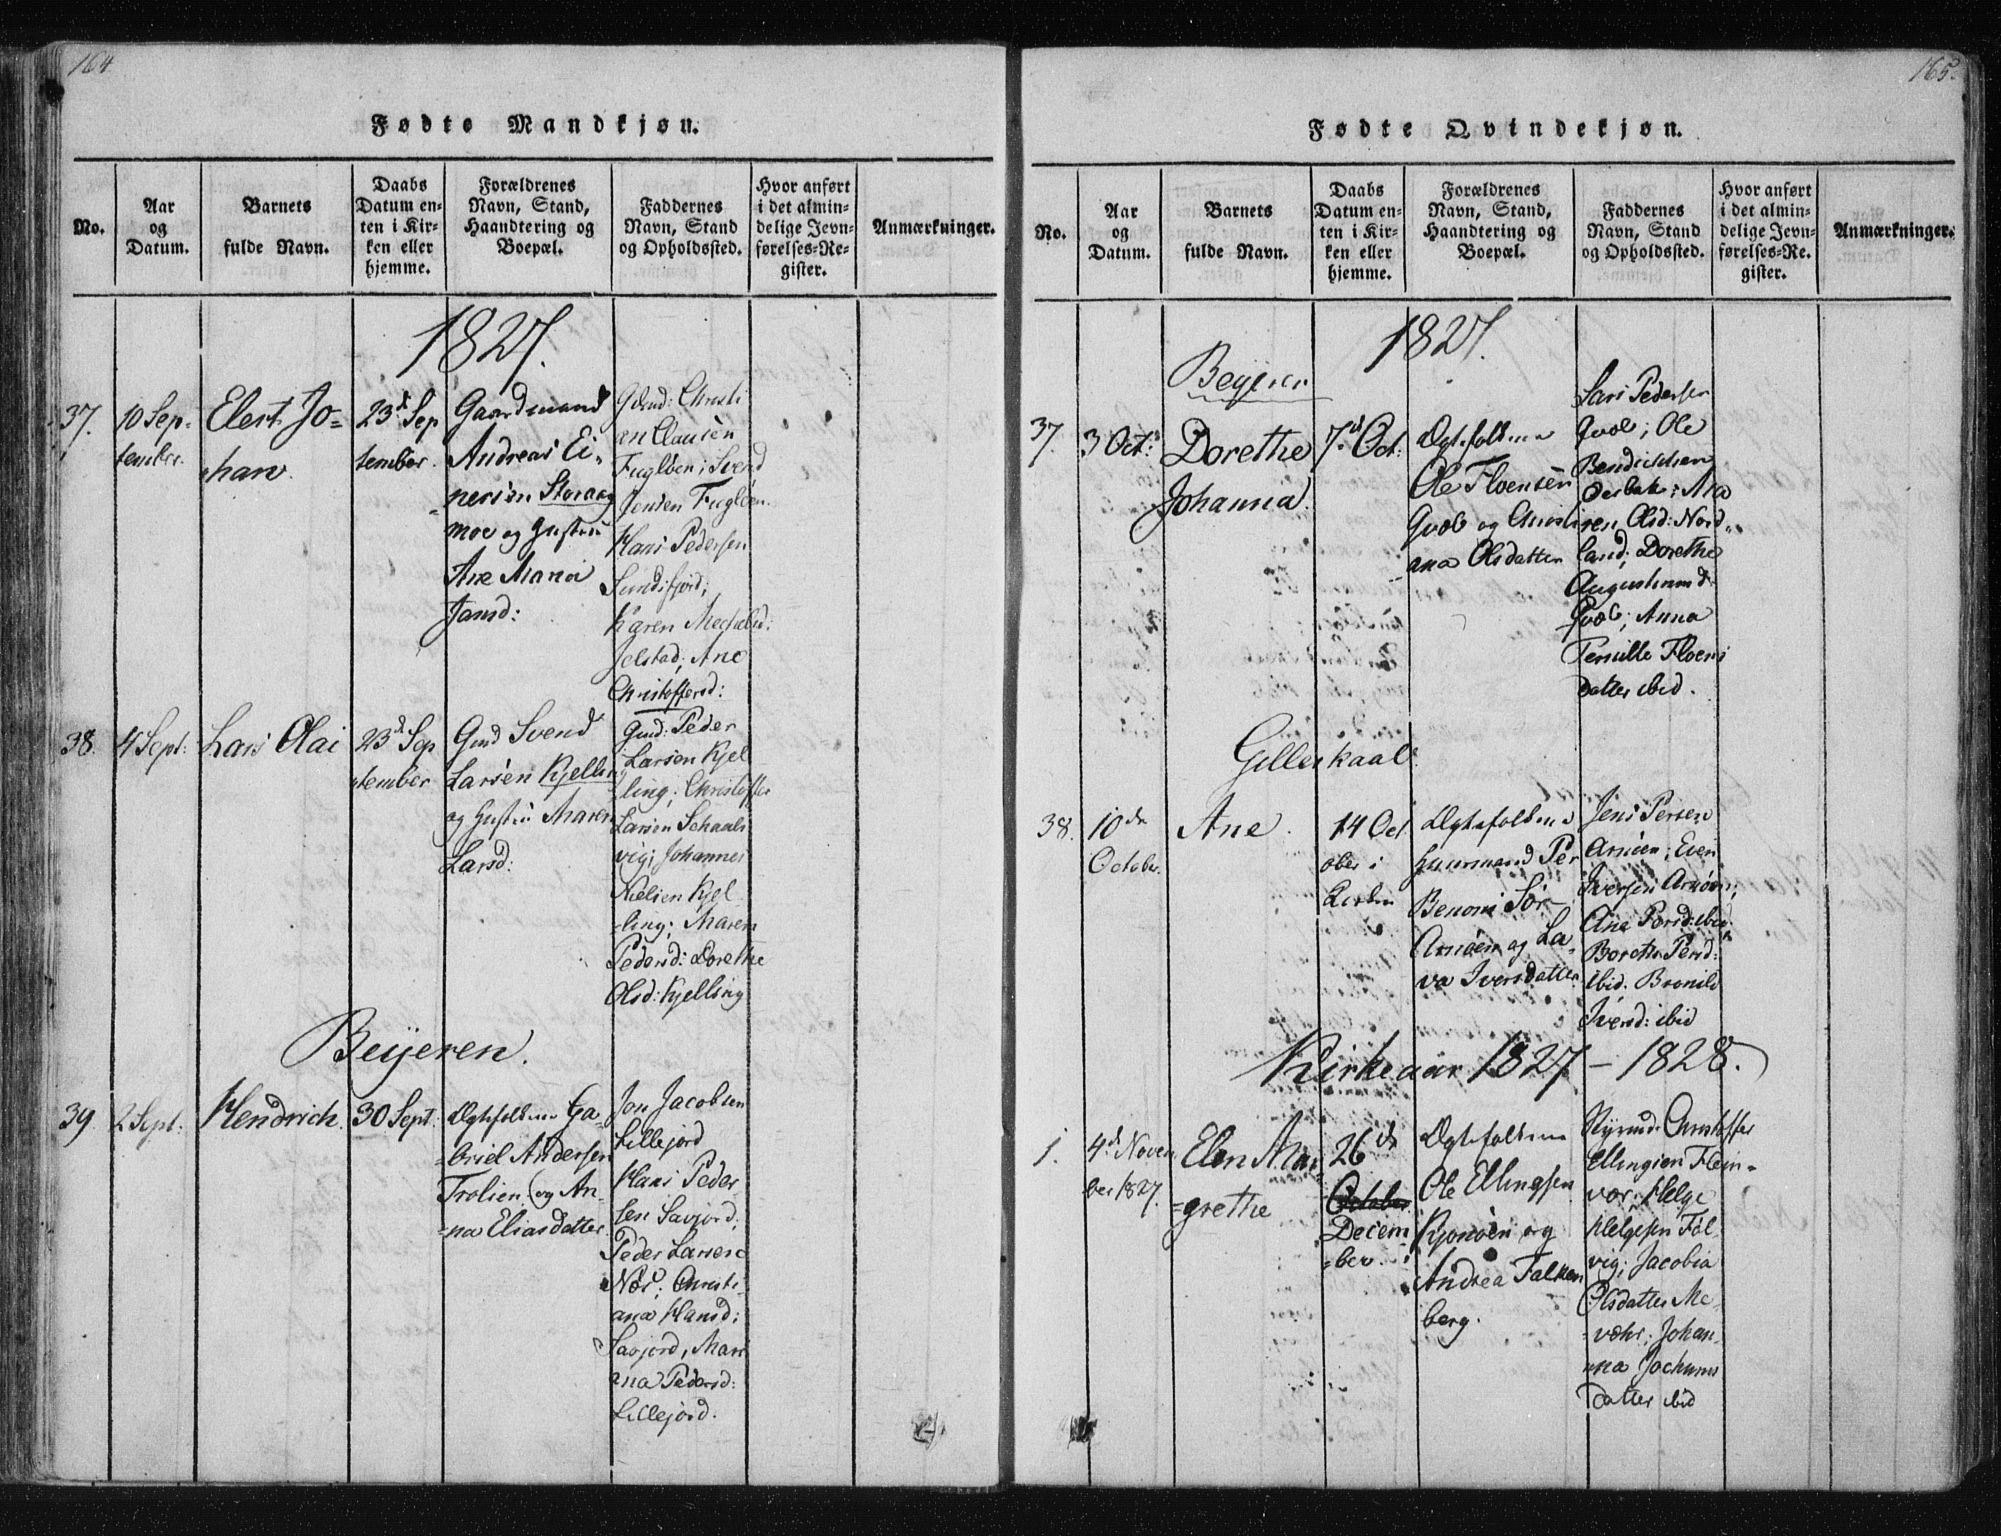 164
Fødte Mandkjøn.
No.
Aar
og
Datum.
Barnets
fulde Navn.
Daabs
Datum en-
ten i Kir-
ken eller
hjemme.
Forældrenes
Navn, Stand,
Haandtering og
Boepæl.
Faddernes
Navn, Stand
og Opholdssted.
Hvor anført
i det almin-
delige Jevn-
førelses-Re-
gister.
Anmærkninger.
1827.
37.
10 Sep-
tember.
Elert Jo-
han.
23d Sep
tember.
Gaardmand
Andreas Ei-
nersen
moe og Hustru
Ane Maria
Jansd:
Christi
an Clausen
Fugløen; Svend
Jensen Fugløen.
Hans Pedersen
Sundsfjord;
Karen
Jelstad; Ane
Christoffersd:
38.
4 Sept:
Lars Olai
23d Sep
tember
Gmd Svend
Larsen Kjelling
og Hustru Maren
Larsd:
Gmd: Peder
Larsen Kjel
ling; Christoffer
Larsen Schaals
vig; Johannes
Nielsen Kjel
-ling; Maren
Pedersd: Dorethe
Olsd: Kjelling
Beijeren.
39.
2 Sept:
Hendrich.
30 Sept:
Ægtefolkene Ga-
-briel Andersen
Trolien og An-
-na Eliasdatter.
Jon Jacobsen
Lillejord
Hans Peder
sen Savjord;
Peder Larsen
Næs; Christi-
ana Hansd:
Savjord, Mari
ana Pedersd:
Lillejord.
165.
Fødte Qvindekjøn.
No.
Aar
og
Datum.
Barnets
fulde Navn.
Daabs
Datum en-
ten i Kir-
ken eller
hjemme.
Forældrenes
Navn, Stand,
Haandtering og
Boepæl.
Faddernes
Navn, Stand
og Opholdssted.
Hvor anført
i det almin-
delige Jevn-
førelses-Re-
gister.
Anmærkninger.
1827.
Beyeren
37.
3 Oct:
Dorethe
Johanna.
7d Oct:
Ægtefolkene
Ole Floensen
Qvæl og Christi
ana Olsdatter
Lars Pedersen
Qvæl; Ole
Bendichsen
Osebak; Ma
ren Olsd: Nord-
land; Dorethe
Augustinusd:
Qvæl; Anna
Pernille Floens
datter ibid.
Gilleskaal.
38.
10de
October.
Ane.
14 Oct
ober i
Kirken
Ægtefolkene
Huusmand Per
Benoni Sør
Arnøen og La-
va Iversdatter
Jens Persen
Arnøen; Even
Iversen Arnøen;
Ane Persd: ibid.
Persd:
ibid. Bronild
Iversd: ibid
Kirkeaar 1827 - 1828.
1.
4d Novem
ber 1827.
Elen Mar
=grethe
26de
October
Decem
-ber.
Ægtefolkene
Ole Ellingsen
og
Andrea Falken
berg.
Christoffer
Ellingsen Flein-
vær; Helge
Helgesen Føl-
vig; Jacobia
Olsdatter Me-
-væhr; Johan-
-na Jochums
datter ibid